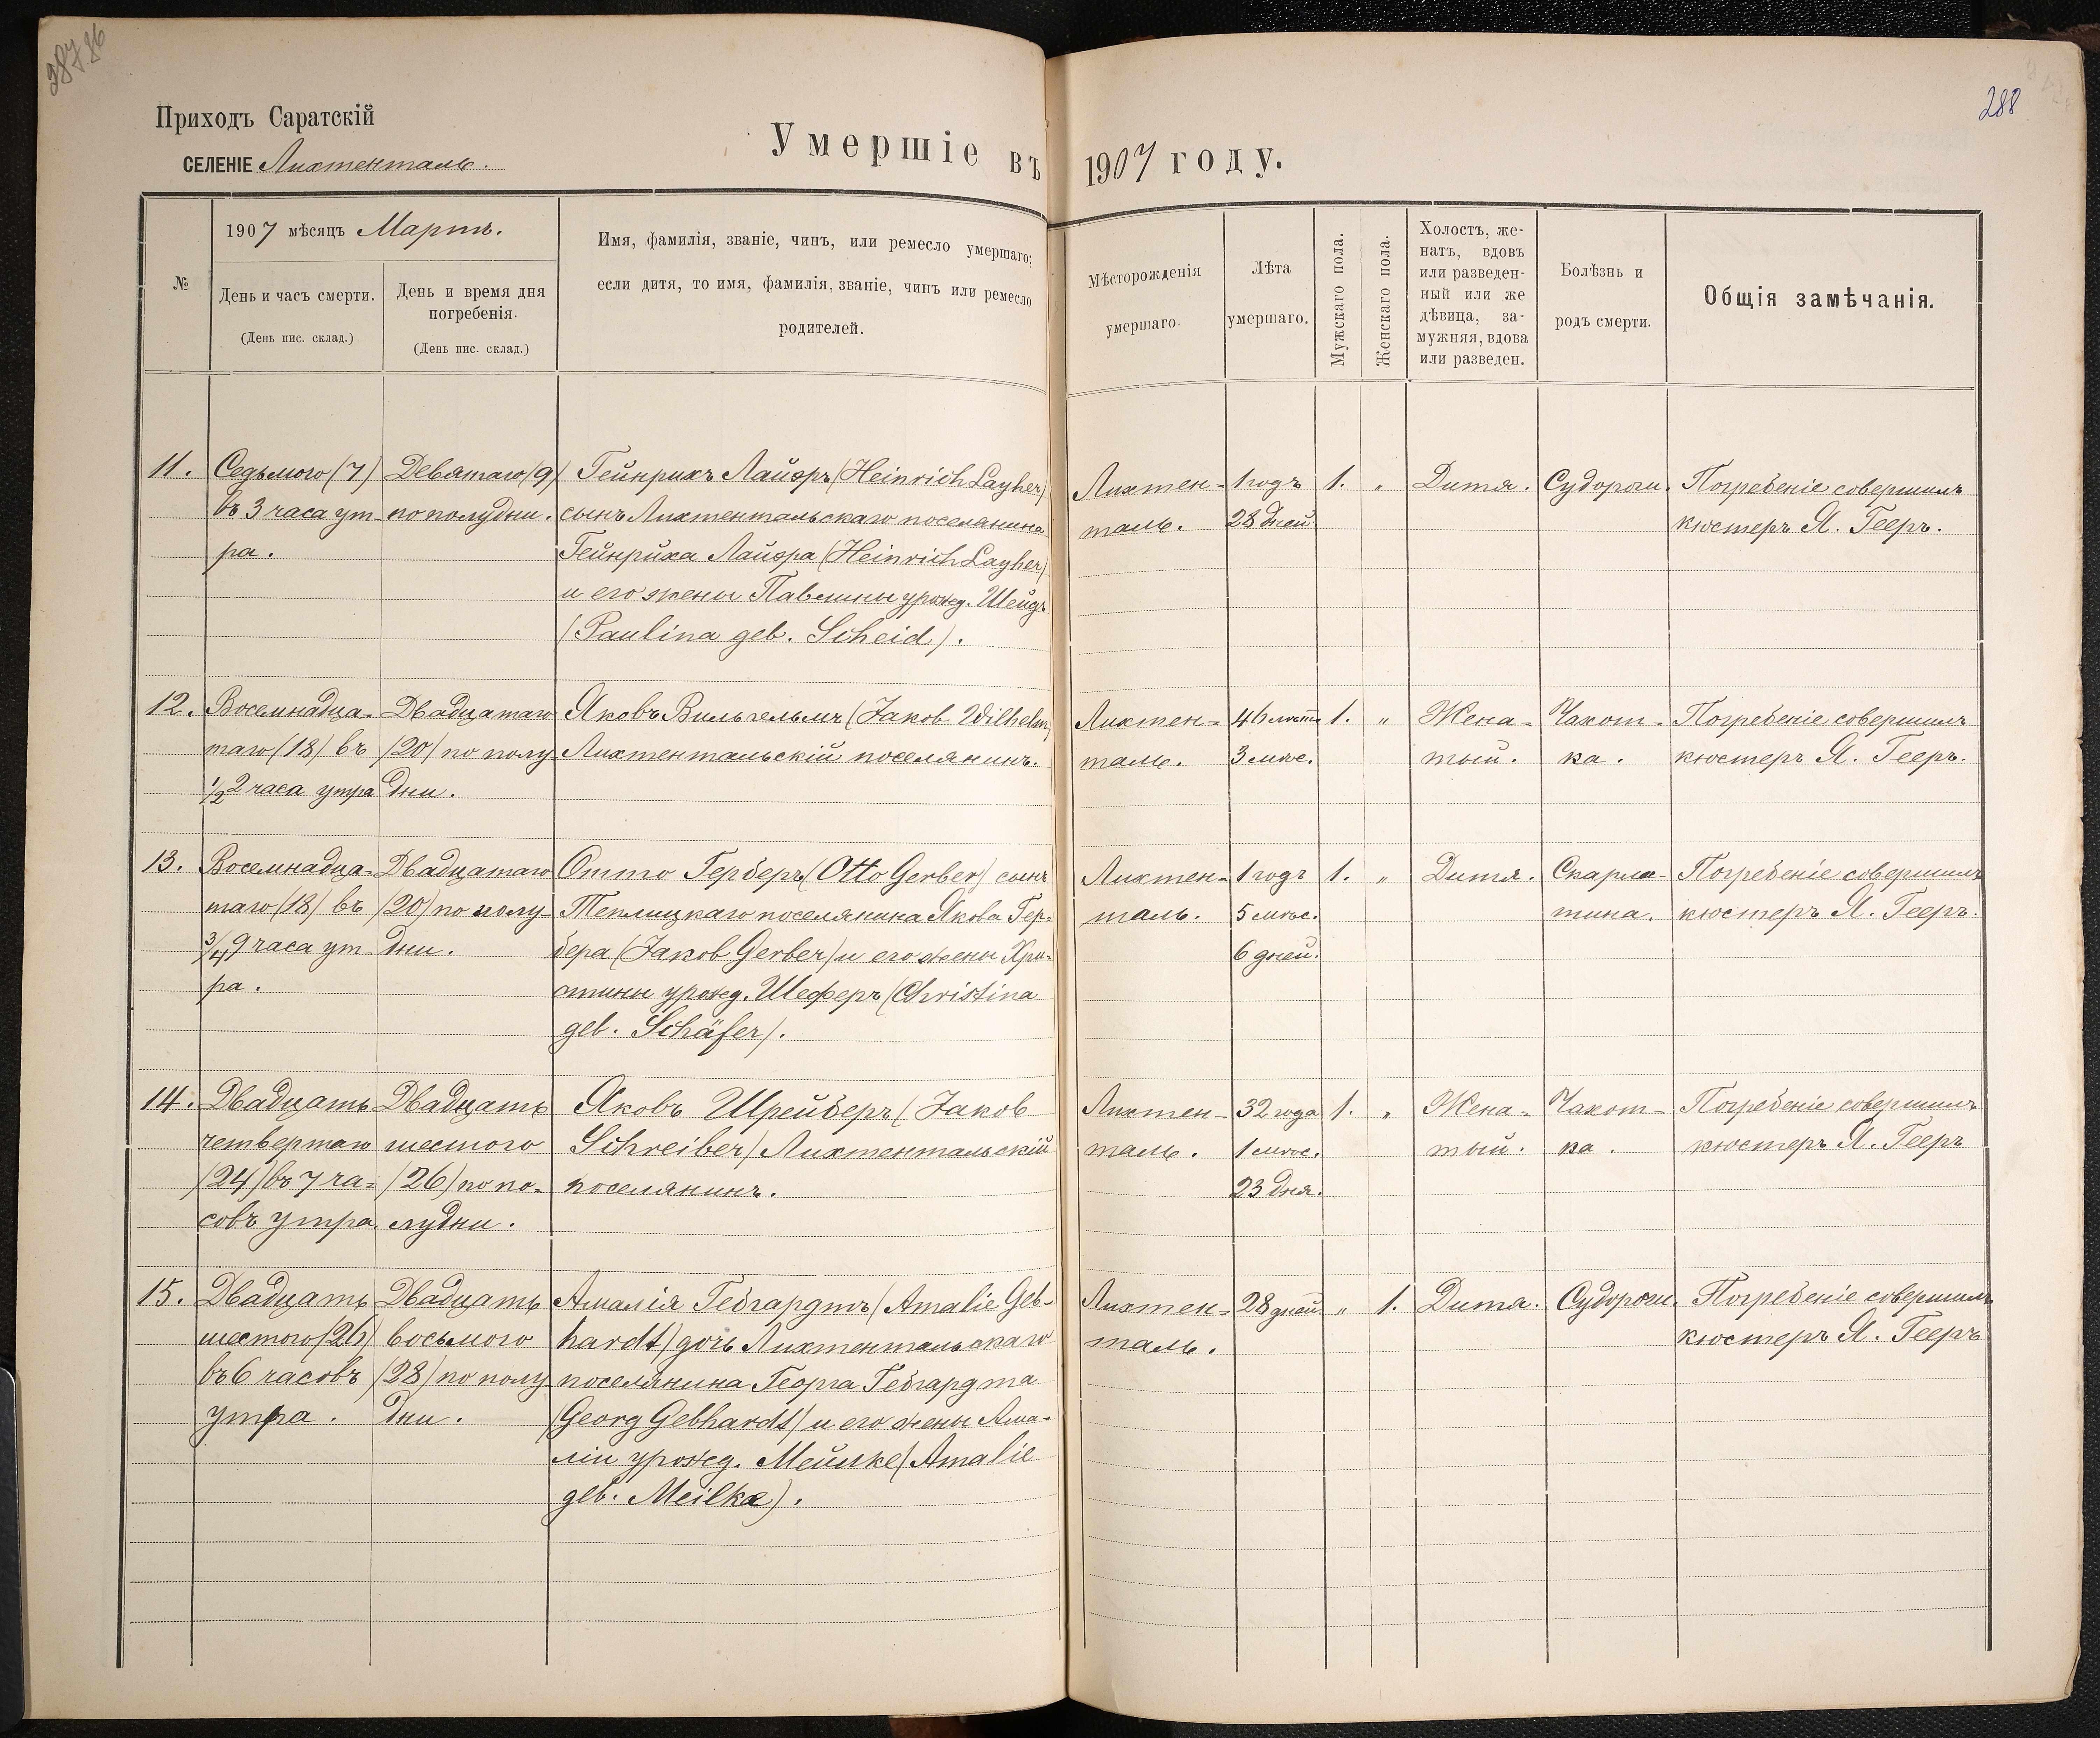 288
Приходъ Саратскій
СЕЛЕНІЕ Лихтенталь.
Умершіе въ 1907 году.
№
1907 мѣсяцъ Мартъ.
День и часъ смерти.
(День пис. склад.)
День и время дня
погребенія.
(День пис. склад.)
Имя, фамилія, званіе, чинъ, или ремесло умершаго;
если дитя, то имя, фамилія, званіе, чинъ или ремесло
родителей.
Мѣсторожденія
умершаго.
Лѣта
умершаго.
Мужскаго пола.
Женскаго пола.
Холостъ, же-
натъ, вдовъ
или разведен-
ный или же
дѣвица, за-
мужняя, вдова
или разведен.
Болѣзнь и
родъ смерти.
Общія замѣчанія.
11.
Седьмого (7)
въ 3 часа ут-
ра.
Девятаго (9)
по полудни.
Гейнрихъ Лайэръ (Heinrich Layher)
сынъ Лихтентальскаго поселянина
Гейнриха Лайэра (Heinrich Layher)
и его жены Павлины урожд. Шейдъ
(Paulina geb. Scheid).
Лихтен-
таль.
1 годъ
28 дней.
1.
"
Дитя.
Судороги.
Погребеніе совершилъ
кюстеръ Я. Гееръ.
12.
Восемнадца-
таго (18) въ
1/2 2 часа утра
Двадцатаго
(20) по полу-
дни.
Яковъ Вильгельмъ (Jakob Wilhelm)
Лихтентальскій поселянинъ.
Лихтен-
таль.
46 лѣтъ
3 мѣс.
1.
"
Жена-
тый.
Чахот-
ка.
Погребеніе совершилъ
кюстеръ Я. Гееръ.
13.
Восемнадца-
таго (18) въ
3/4 9 часа ут-
ра.
Двадцатаго
(20) по полу-
дни.
Отто Герберъ (Otto Gerber) сынъ
Теплицкаго поселянина Якова Гер-
бера (Jakob Gerber) и его жены Хри-
стины урожд. Шеферъ (Christina
geb. Schäfer).
Лихтен-
таль.
1 годъ
5 мѣс.
6 дней.
1.
"
Дитя.
Скарла-
тина.
Погребеніе совершилъ
кюстеръ Я. Гееръ.
14.
Двадцать
четвертаго
(24) въ 7 ча-
совъ утра
Двадцать
шестого
(26) по по-
лудни.
Яковъ Шрейберъ (Jakob
Schreiber) Лихтентальскій
поселянинъ.
Лихтен-
таль.
32 года
1 мѣс.
23 дня.
1.
"
Жена-
тый.
Чахот-
ка.
Погребеніе совершилъ
кюстеръ Я. Гееръ
15.
Двадцать
шестого (26)
въ 6 часовъ
утра.
Двадцать
восьмого
(28) по полу-
дни.
Амалія Гебгардтъ (Amalie Geb-
hardt) дочь Лихтентальскаго
поселянина Георга Гебгардта
(Georg Gebhardt) и его жены Ама-
ліи урожд. Мейлке (Amalie
geb. Meilke).
Лихтен-
таль.
28 дней
"
1.
Дитя.
Судороги.
Погребеніе совершилъ
кюстеръ Я. Гееръ